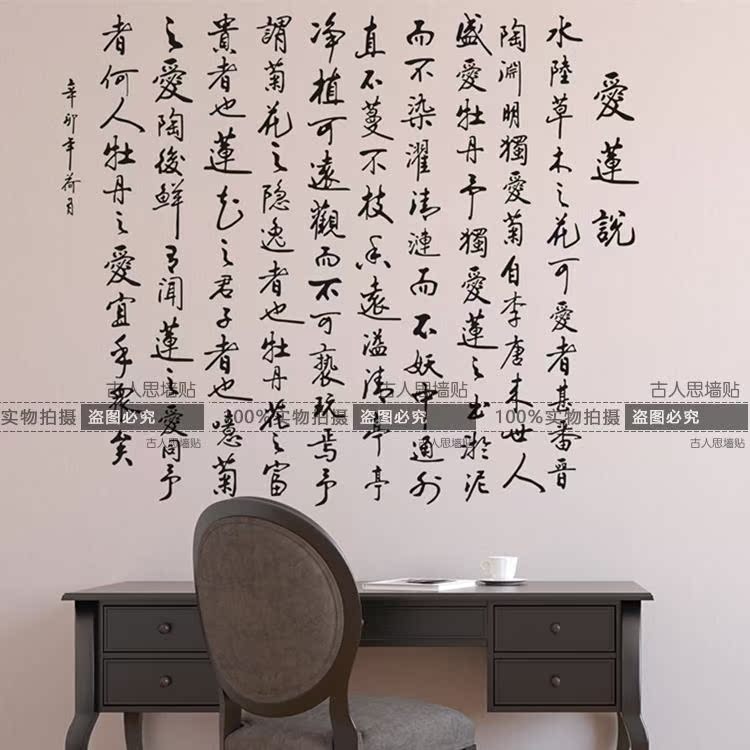 愛蓮說
水陸草木之花可愛者甚番晋
陶淵明獨愛菊自李唐来世人
盛愛牡丹予獨愛蓮之出淤泥
而不染濯清漣而不妖中通外
直不蔓不枝香遠溢清亭亭
净植可遠觀而不可褻玩焉予
謂菊花之隐逸者也牡丹花之富
貴者也蓮花之君子者也噫菊
之愛陶後鮮有闻蓮之愛同予
者何人牡丹之愛宜乎衆矣
辛卯年荷月
古人思墙贴
古人思墙贴
古人思墙贴
实物拍摄 盗图必究
100%实物拍摄 盗图必究
100%实物拍摄 盗图必究
古人思墙贴
古人思墙贴
古人思墙贴